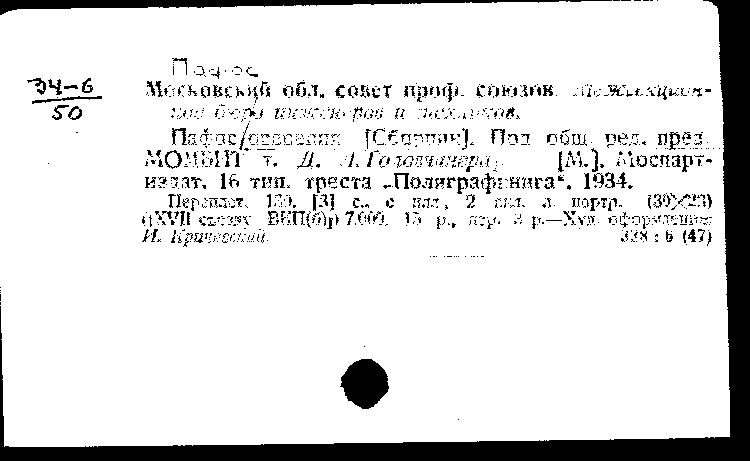 Пафос
Э4-6
50
Московский обл. совет проф. союзов. Межсекцион-
ное бюро инженеров и техников.
Пафос освоения [Сборник]. Под общ. ред. пред.
МОМБИТ т. Д. А. Головчинера, [М.]. Моспарт-
издат. 16 тип. треста „Полиграфкнига“, 1934.
Переплет. 130, [3] с., с илл., 2 вкл. л. портр. (30×23)
(XVII съезду ВКП(б)) 7.000. 15 р., пер. 3 р.—Худ. оформление
И. Кричевский. 338 : 6 (47)